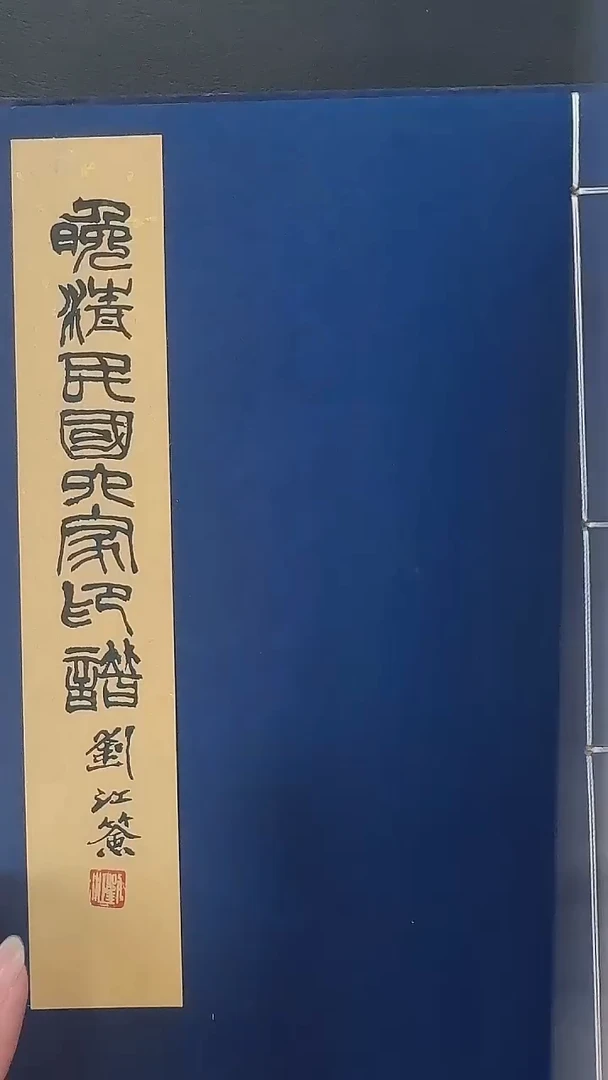 晚清民國六家印譜
劉江簽